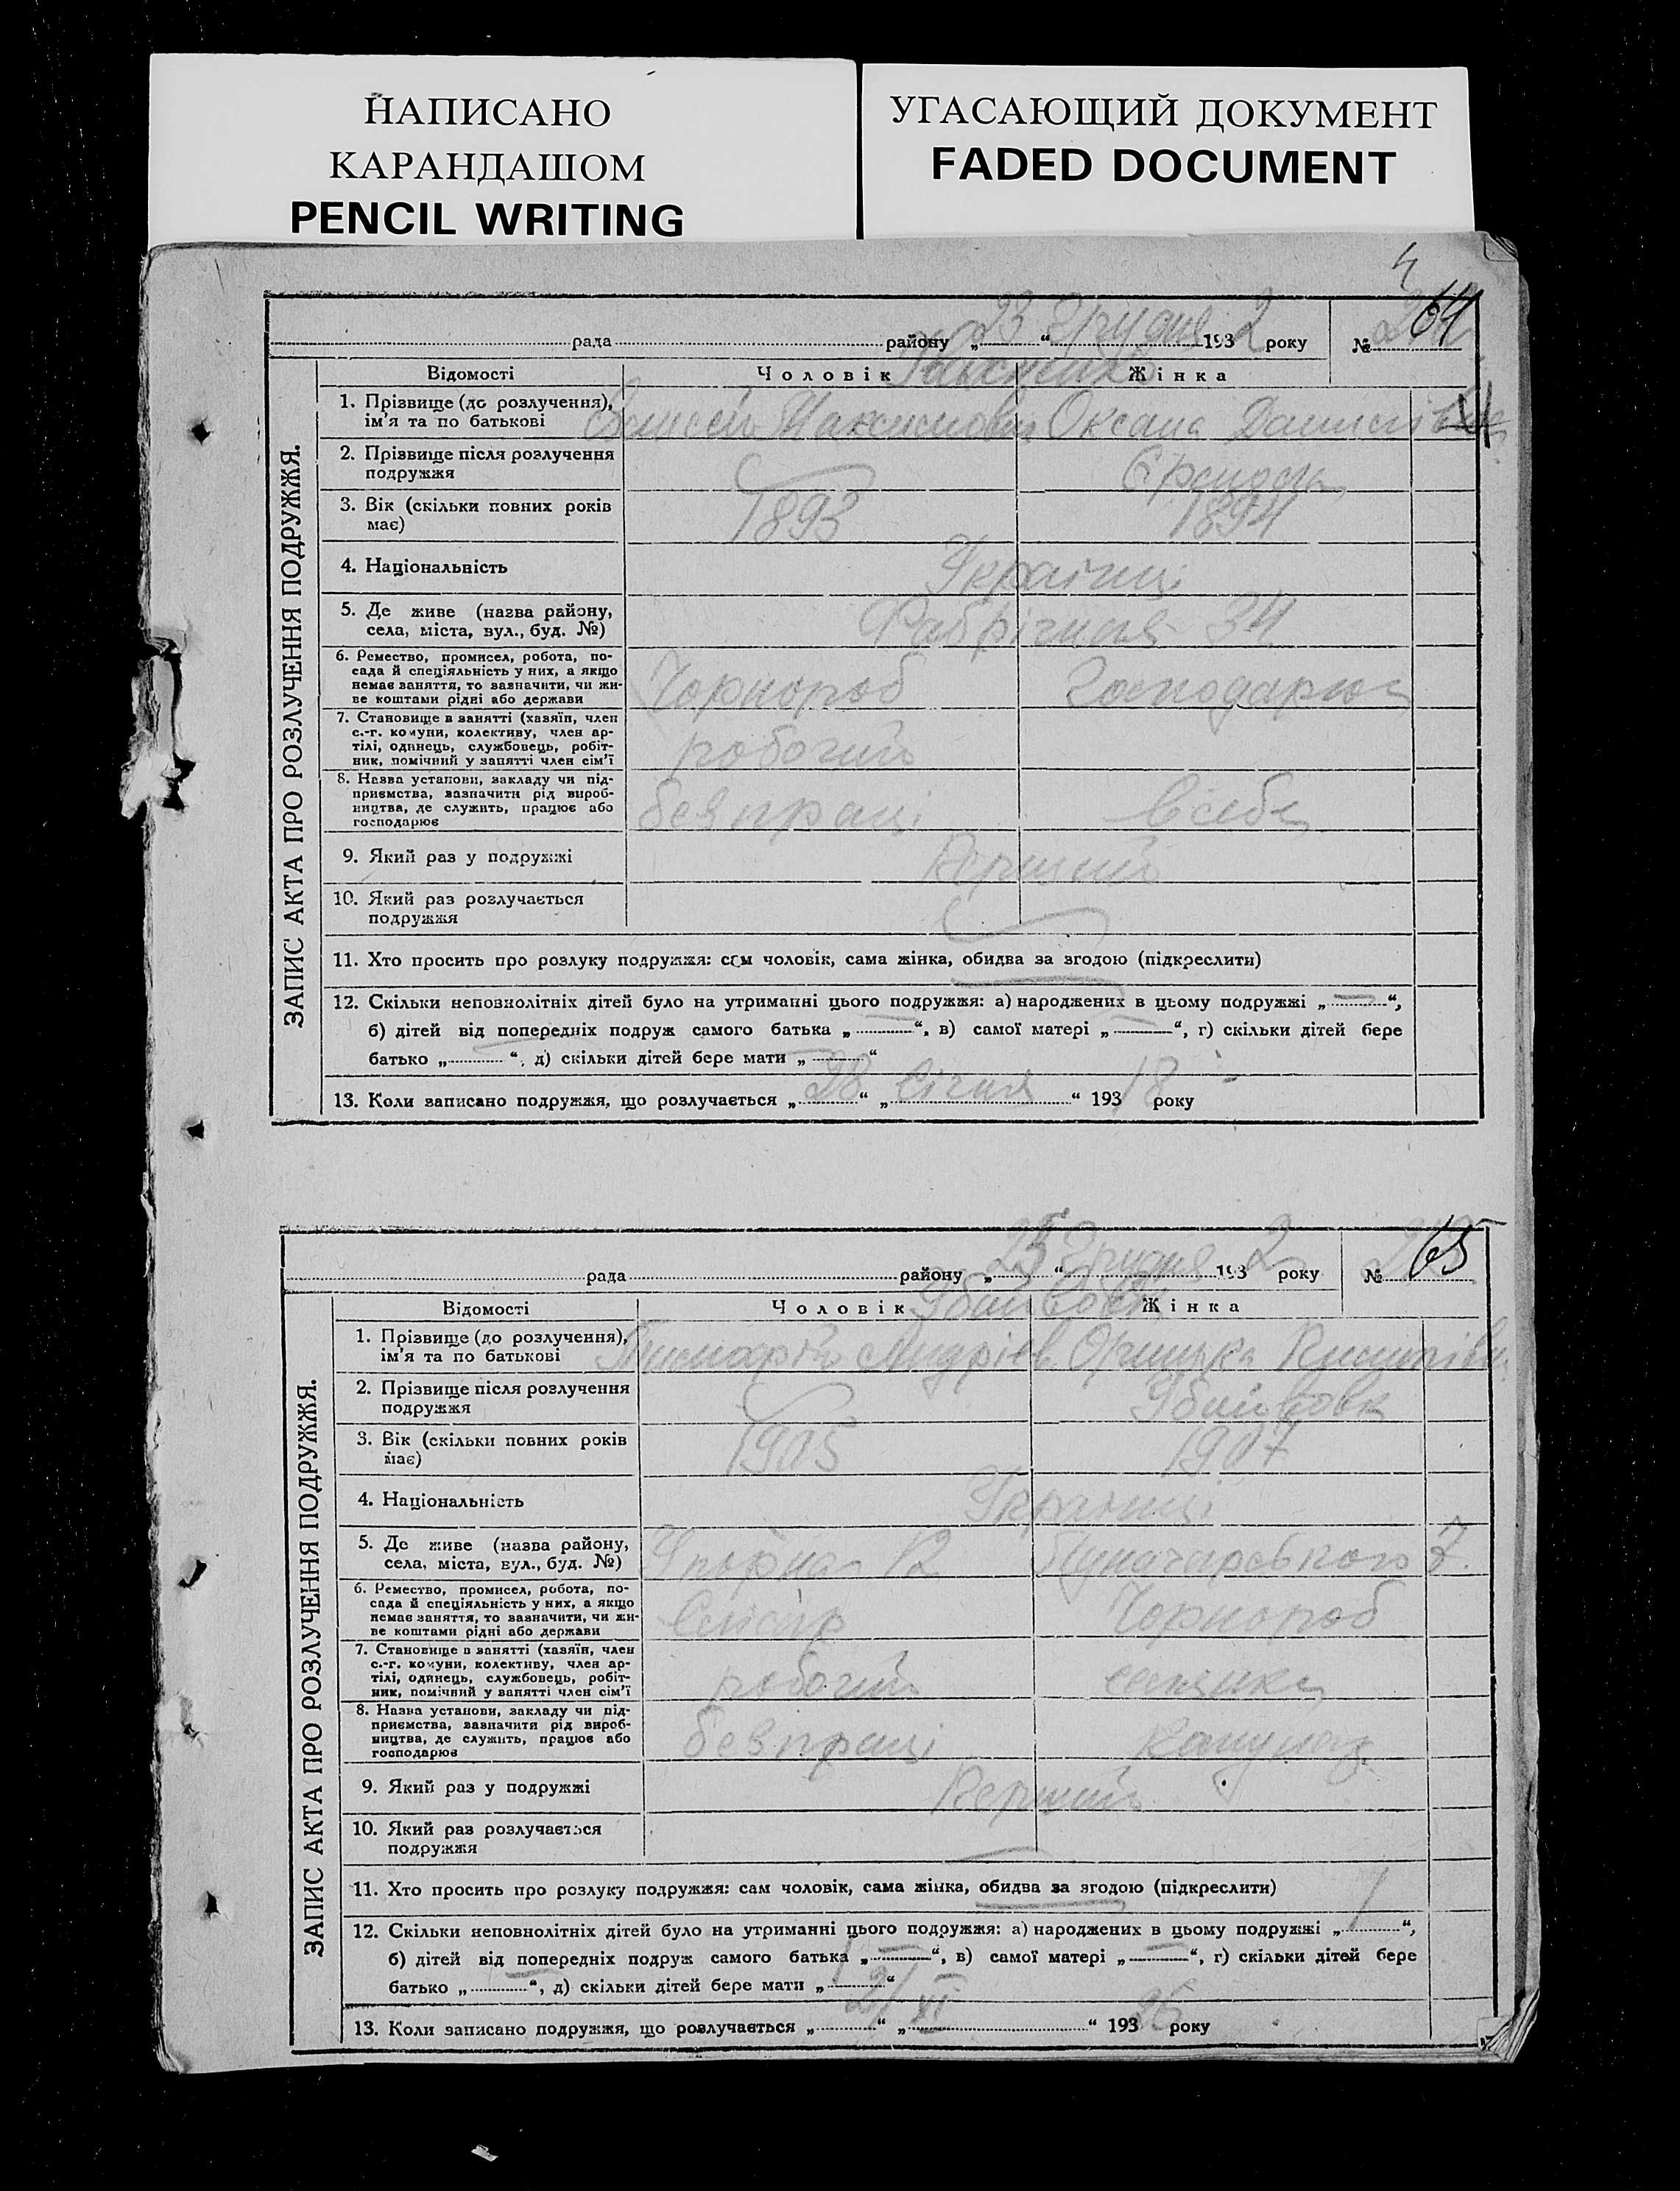 НАПИСАНО
КАРАНДАШОМ
PENCIL WRITING
УГАСАЮЩИЙ ДОКУМЕНТ
FADED DOCUMENT
64
рада району „23“ Грудня 1932 року №
ЗАПИС АКТА ПРО РОЗЛУЧЕННЯ ПОДРУЖЖЯ.
Відомості Чоловік Жінка
1. Прізвище (до розлучення), ім'я та по батькові Максимович Оксана
2. Прізвище після розлучення подружжя
3. Вік (скільки повних років має) 1893 1894
4. Національність Українці
5. Де живе (назва району, села, міста, вул., буд. №) Фабрічная 34
6. Ремество, промисел, робота, по-
сада й спеціяльність у них, а якщо
немає заняття, то зазначити, чи жи-
ве коштами рідні або держави Чорнороб Господарка
7. Становище в занятті (хазяїн, член
с.-г. комуни, колективу, член ар-
тілі, одинець, службовець, робіт-
ник, помічний у занятті член сім'ї робочий
8. Назва установи, закладу чи під-
приємства, зазначити рід вироб-
ництва, де служить, працює або
господарює безпраці всебе
9. Який раз у подружжі Перший
10. Який раз розлучається
подружжя
11. Хто просить про розлуку подружжя: сам чоловік, сама жінка, обидва за згодою (підкреслити)
12. Скільки неповнолітніх дітей було на утриманні цього подружжя: а) народжених в цьому подружжі „—“,
б) дітей від попередніх подруж самого батька „—“, в) самої матері „—“, г) скільки дітей бере
батько „—“, д) скільки дітей бере мати „—“
13. Коли записано подружжя, що розлучається „28“ „Січня“ 193 18 року
65
рада району „25“ Грудня 1932 року №
ЗАПИС АКТА ПРО РОЗЛУЧЕННЯ ПОДРУЖЖЯ.
Відомості Чоловік Жінка
1. Прізвище (до розлучення),
ім'я та по батькові Андріев
2. Прізвище після розлучення
подружжя
3. Вік (скільки повних років
має) 1905 1907
4. Національність Українці
5. Де живе (назва району,
села, міста, вул., буд. №) 12 Луначарського 7.
6. Ремество, промисел, робота, по-
сада й спеціяльність у них, а якщо
немає заняття, то зазначити, чи жи-
ве коштами рідні або держави Слюсар Чорнороб
7. Становище в занятті (хазяїн, член
с.-г. комуни, колективу, член ар-
тілі, одинець, службовець, робіт-
ник, помічний у занятті член сім'ї робочий
8. Назва установи, закладу чи під-
приємства, зазначити рід вироб-
ництва, де служить, працює або
господарює безпраці
9. Який раз у подружжі Перший
10. Який раз розлучається
подружжя
11. Хто просить про розлуку подружжя: сам чоловік, сама жінка, обидва за згодою (підкреслити)
12. Скільки неповнолітніх дітей було на утриманні цього подружжя: а) народжених в цьому подружжі „1“,
б) дітей від попередніх подруж самого батька „—“, в) самої матері „—“, г) скільки дітей бере
батько „—“, д) скільки дітей бере мати „1“
13. Коли записано подружжя, що розлучається „21“ „XI“ 193 року